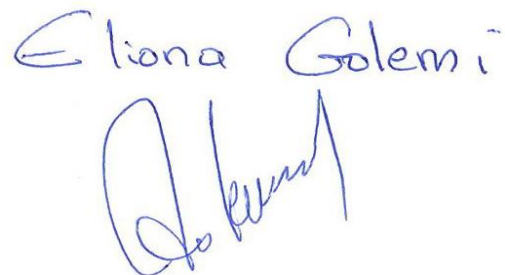 Eliona Golemi